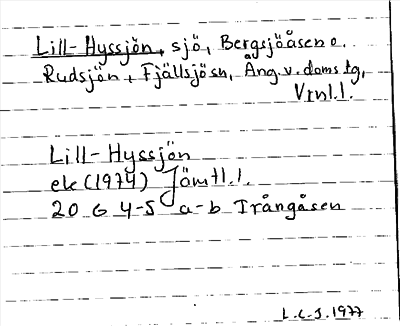 Lill-Hyssjön, sjö, Bergsjöåsen o.
Rudsjön, Fjällsjö sn, Ång. v. doms tg,
Vrnl.l.
Lill-Hyssjön
ek (1974) Jämtl.l.
20 G 4-5 a-b Trångåsen
L.C.J. 1977